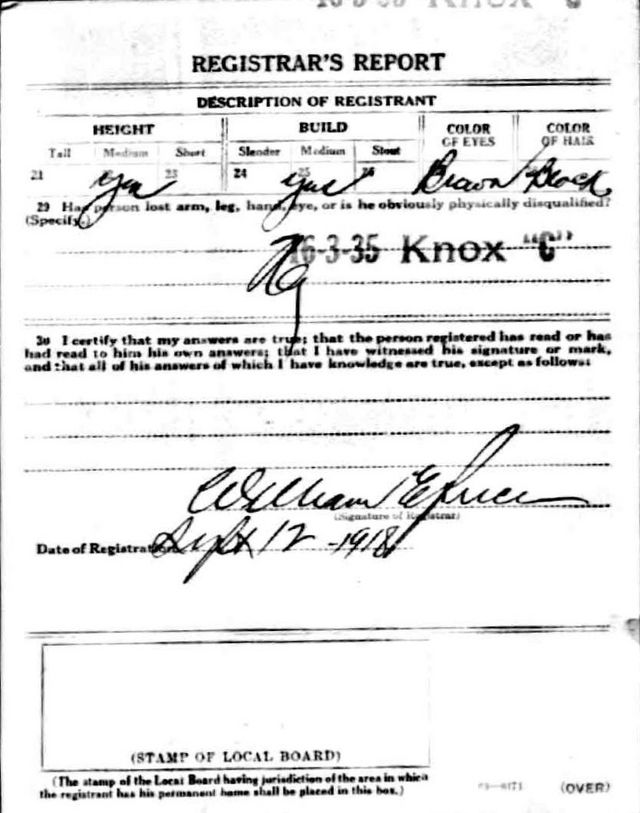 16-3-35 Knox "C"
REGISTRAR'S REPORT
DESCRIPTION OF REGISTRANT
HEIGHT BUILD COLOR OF EYES COLOR OF HAIR
Tall Medium Short Slender Medium Stout
21 Yes 23 24 Yes 26 Brown Black
29 Has person lost arm, leg, hand, eye, or is he obviously physically disqualified?
(Specify.)
16-3-35 Knox "C"
No
30 I certify that my answers are true; that the person registered has read or has
had read to him his own answers; that I have witnessed his signature or mark,
and that all of his answers of which I have knowledge are true, except as follows:
William E
(Signature of Registrar)
Date of Registration Sept 12 - 1918
(STAMP OF LOCAL BOARD)
(The stamp of the Local Board having jurisdiction of the area in which
the registrant has his permanent home shall be placed in this box.)
(OVER)